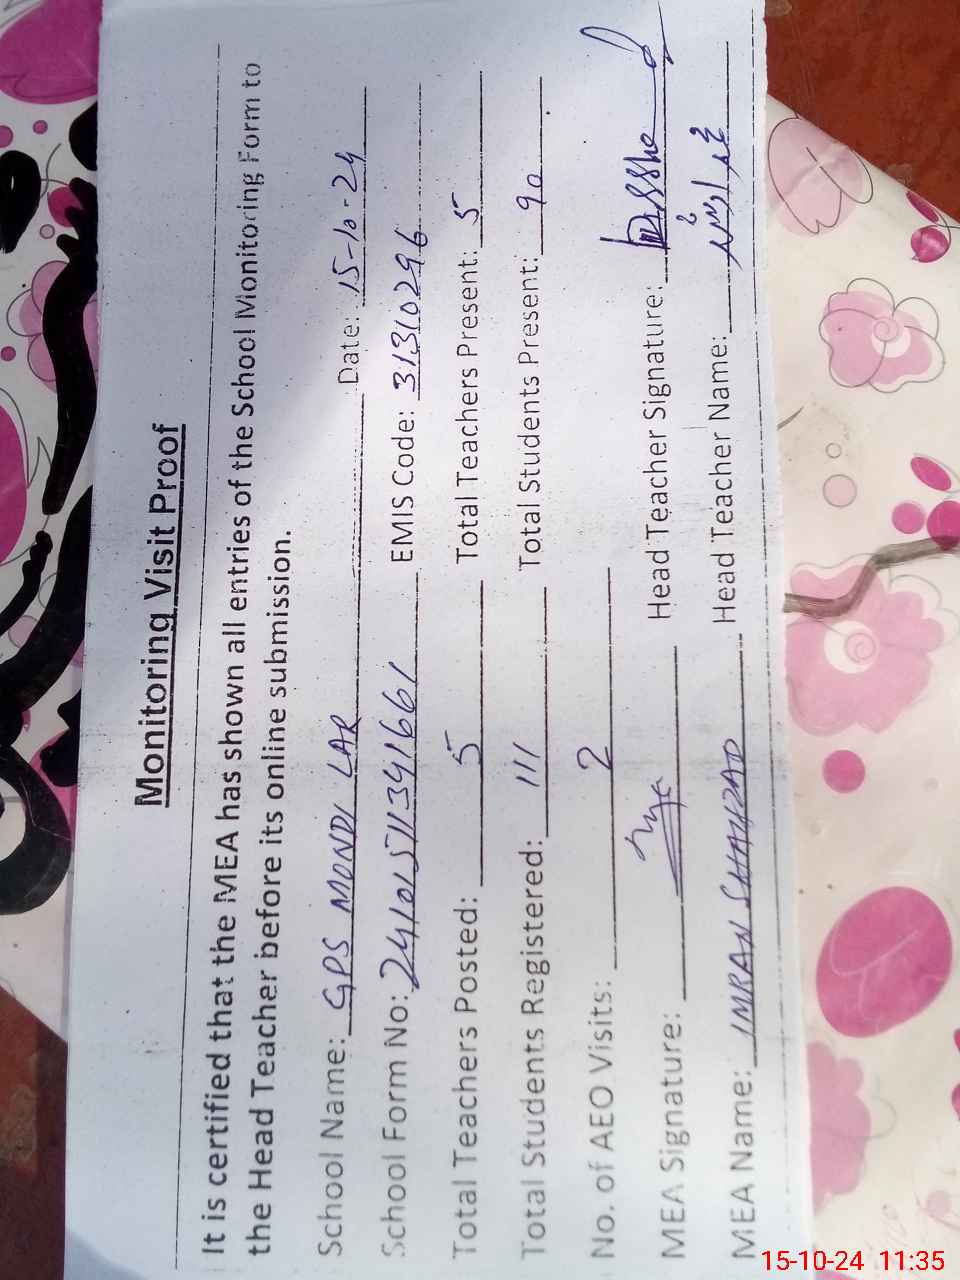 Monitoring Visit Proof
It is certified that the MEA has shown all entries of the School Monitoring Form to
the Head Teacher before its online submission.
School Name: GPS MONDI LAR Date: 15-10-24
School Form No: 241015113941661 EMIS Code: 31310296
Total Teachers Posted: 5 Total Teachers Present: 5
Total Students Registered: 111 Total Students Present: 90
No. of AEO Visits: 2
MEA Signature: Head Teacher Signature:
MEA Name: IMRAN SHAHZAD Head Teacher Name:
15-10-24 11:35